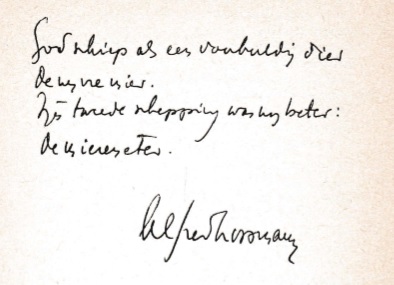 God schiep als een voorbeeldig dier
de nijvre mier.
Zijn tweede schepping was nog beter:
de miereneter.
Alfred Kossmann